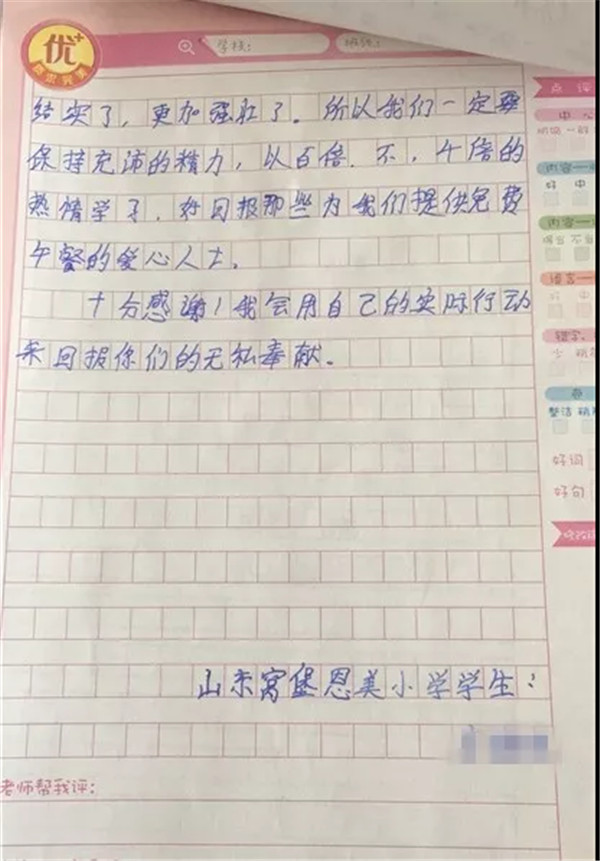 优+
学校：
班级：
结实了，更加强壮了。所以我们一定要
保持充沛的精力，以百倍.不，千倍的
热情学习，好回报那些为我们提供免费
午餐的爱心人士。
十分感谢！我会用自己的实际行动
来回报你们的无私奉献。
山东窝堡恩美小学学生：
老师帮我评：
点评
中心
内容一
好 中
内容一
语言一
好 中
错字
少
卷
整洁
好词
好句